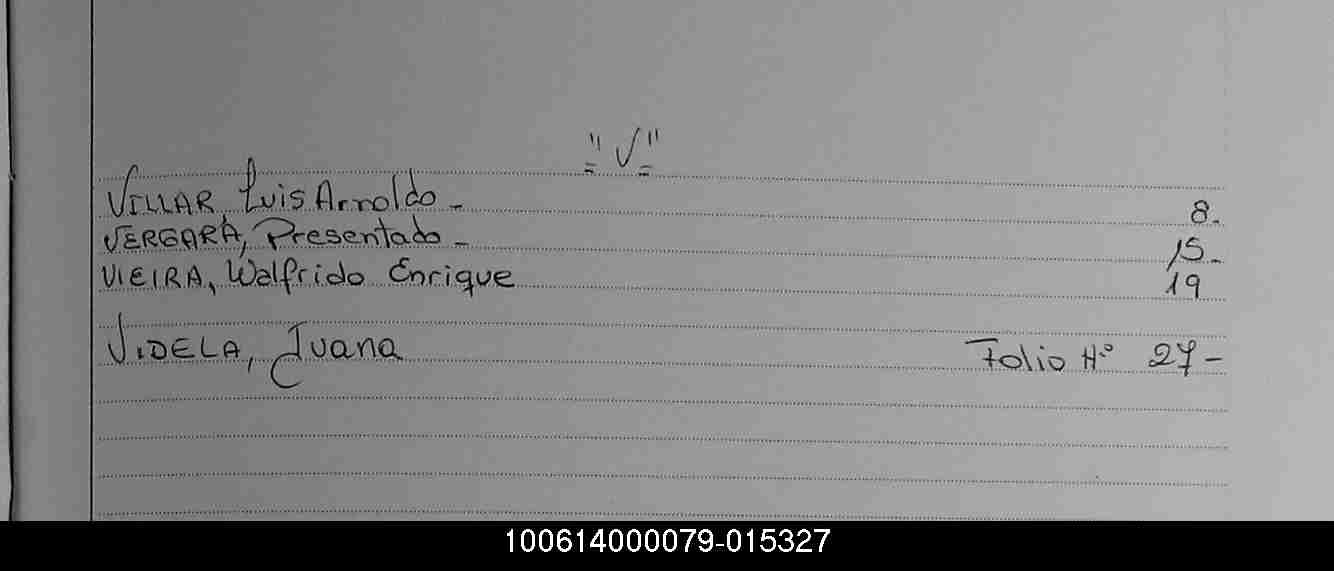 "V"
VILLAR, Luis Arnoldo - 8.
VERGARA, Presentado - 15-
VIEIRA, Walfrido Enrique 19
VIDELA, Juana Folio Nº 27-
100614000079-015327